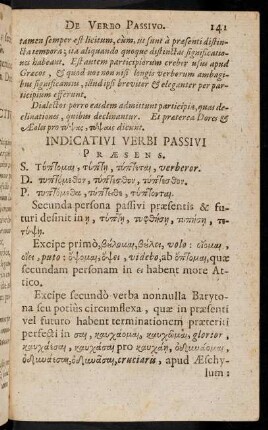 DE VERBO PASSIVO. 141
tamen semper est licitum, cùm, ut sunt à præsenti distin-
cta tempora; ita aliquando quoque distinctas significatio-
nes habeant. Est autem participiorum creber usus apud
Græcos, & quod nos non nisi longis verborum ambagi-
bus significamus, illud ipsi breviter & eleganter per par-
ticipium efferunt.
Dialectos porro easdem admittunt participia, quas de-
clinationes, quibus declinantur. Et præterea Dores &
Æoles pro τύψας, τύψαις dicunt.
INDICATIVI VERBI PASSIVI
PRÆSENS.
S. Τύπτομαι, τύπτῃ, τύπτεται, verberor.
D. τυπτόμεθον, τύπτεσθον, τύπτεσθον.
P. τυπτόμεθα, τύπτεσθε, τύπτονται.
Secunda persona passivi præsentis & fu-
turi desinit in ῃ, τύπτῃ, τυφθήσῃ, τυπήσῃ, τε-
τύψῃ.
Excipe primò, βούλομαι, βούλει, volo: οἴομαι,
οἴει, puto: ὄψομαι, ὄψει, videbo, ab ὄπτομαι, quæ
secundam personam in ει habent more At-
tico.
Excipe secundò verba nonnulla Baryto-
na seu potiùs circumflexa, quæ in præsenti
vel futuro habent terminationem præteriti
perfecti in σαι, καυχάομαι, καυχῶμαι, glorior,
καυχάεσαι, καυχᾶσαι pro καυχᾷ, ὀδυνάομαι,
ὀδυνάεσαι, ὀδυνᾶσαι, cruciaris, apud Æschy-
lum: